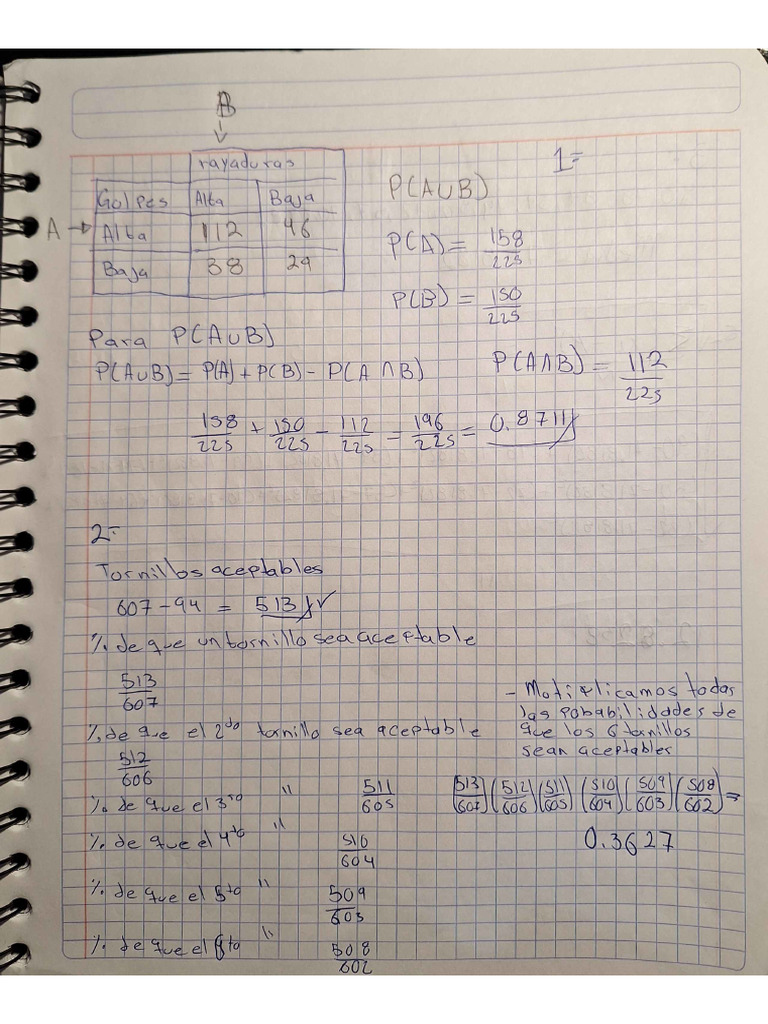 B
1=
rayaduras
Golpes Alta Baja
A → Alta 112 46
Baja 38 29
P(A∪B)
P(A) = 158/225
P(B) = 150/225
Para P(A∪B)
P(A∪B) = P(A) + P(B) - P(A∩B)
P(A∩B) = 112/225
158/225 + 150/225 - 112/225 = 196/225 = 0.8711
2=
Tornillos aceptables
607 - 94 = 513 ✓
%. de que un tornillo sea aceptable
513/607
%. de que el 2do tornillo sea aceptable
512/606
%. de que el 3ro " 511/605
%. de que el 4to " 510/604
%. de que el 5to " 509/603
%. de que el 6to " 508/602
- Motiplicamos todas
las pobabilidades de
que los 6 tornillos
sean aceptables
(513/607)(512/606)(511/605)(510/604)(509/603)(508/602) =
0.3627